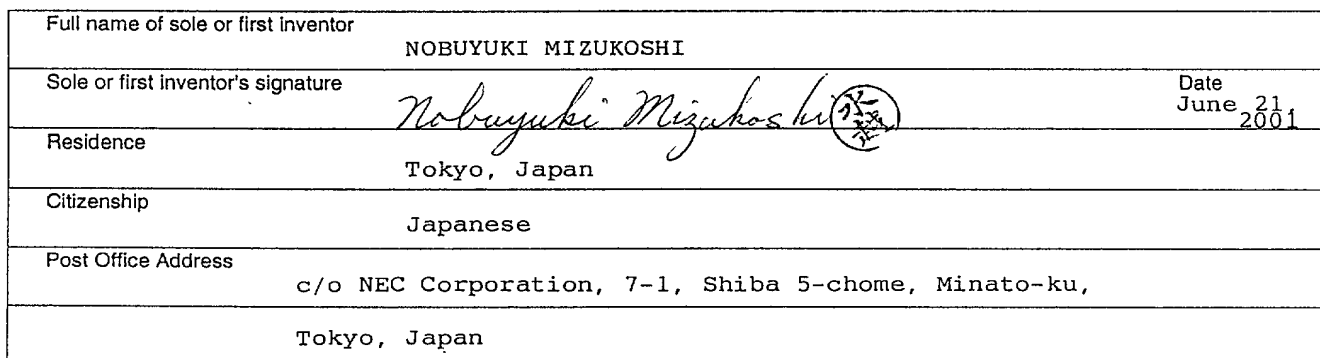 Full name of sole or first inventor
NOBUYUKI MIZUKOSHI
Sole or first inventor's signature
Nobuyuki Mizukoshi
Date
June 21,
2001
Residence
Tokyo, Japan
Citizenship
Japanese
Post Office Address
c/o NEC Corporation, 7-1, Shiba 5-chome, Minato-ku,
Tokyo, Japan